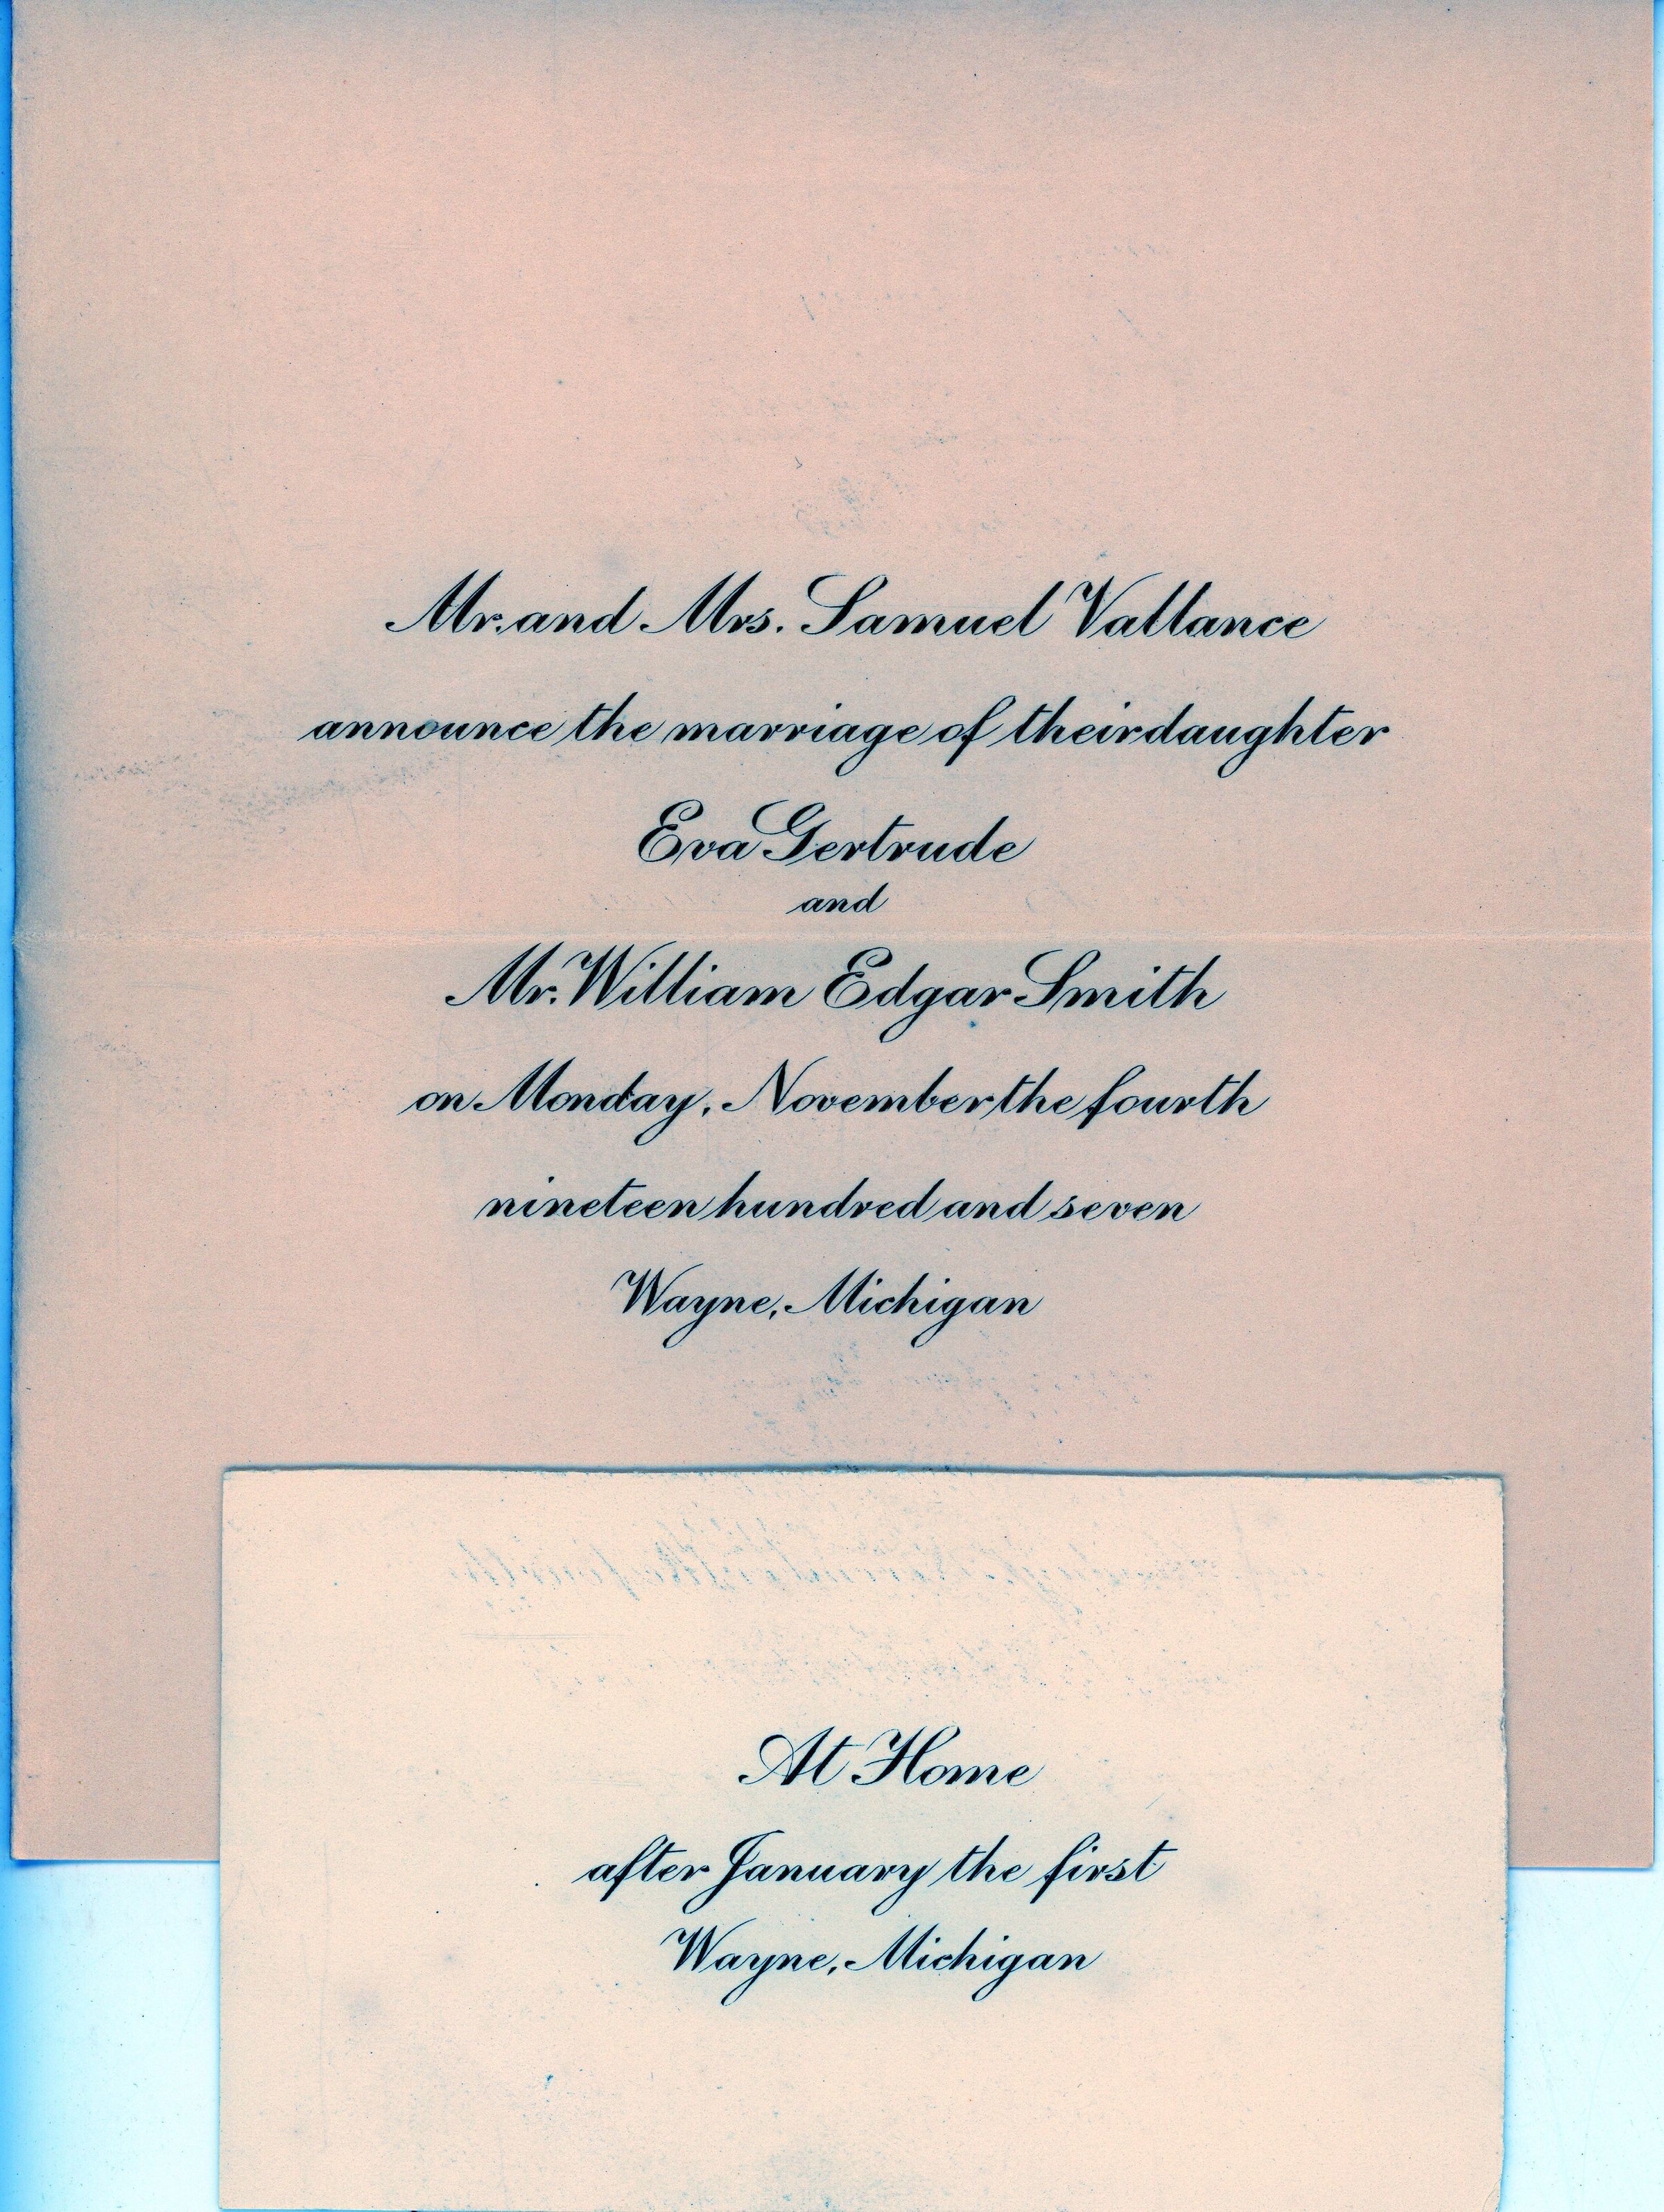 Mr. and Mrs. Samuel Vallance
announce the marriage of their daughter
Eva Gertrude
and
Mr. William Edgar Smith
on Monday, November the fourth
nineteen hundred and seven
Wayne, Michigan
At Home
after January the first
Wayne, Michigan